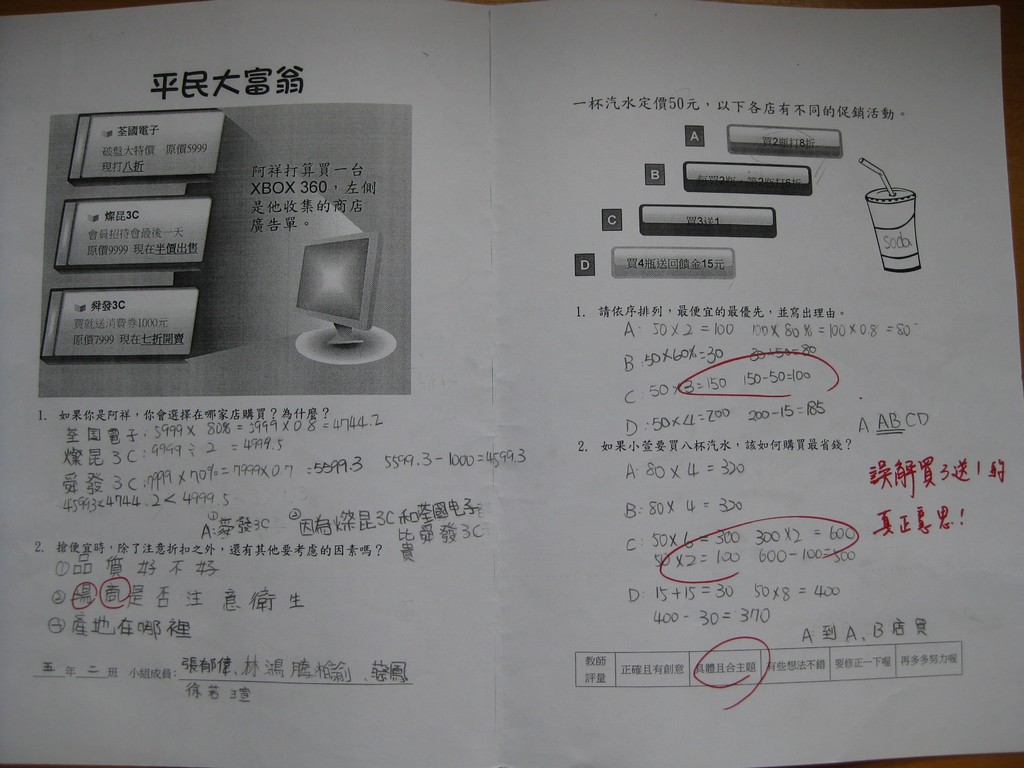 平民大富翁
荃國電子
破盤大特價 原價5999
現打八折
燦昆3C
會員招待會最後一天
原價9999 現在半價出售
舜發3C
買就送消費券1000元
原價7999 現在七折開賣
阿祥打算買一台
XBOX 360，左側
是他收集的商店
廣告單。
1. 如果你是阿祥，你會選擇在哪家店購買？為什麼？
荃国電子：5999×80%=5999×0.8=4744.2
燦昆3C：9999÷2=4999.5
舜發3C：7999×70%=7999×0.7=5599.3 5599.3-1000=4599.3
4599.3<4744.2<4999.5
A:①舜發3C ②因為燦昆3C和荃國电子
比舜發3C
貴
2. 搶便宜時，除了注意折扣之外，還有其他要考慮的因素嗎？
①品質好不好
②場商是否注意衛生
③產地在哪裡
五年二班 小組成員：張郁偉、林鴻
徐若瑄
一杯汽水定價50元，以下各店有不同的促銷活動。
A 買2瓶打8折
B 每買2瓶，第2瓶打6折
C 買3送1
D 買4瓶送回饋金15元
soda
1. 請依序排列，最便宜的最優先，並寫出理由。
A：50×2=100 100×80%=100×0.8=80
B：50×60%=30 30+50=80
C：50×3=150 150-50=100
D：50×4=200 200-15=185
A ABCD
2. 如果小萱要買八杯汽水，該如何購買最省錢？
A：80×4=320
B：80×4=320
C：50×6=300 300×2=600
50×2=100 600-100=500
D：15+15=30 50×8=400
400-30=370
A:到A、B店買
誤解買3送1的
真正意思！
教師評量 正確且有創意 具體且合主題 有些想法不錯 要修正一下喔 再多多努力喔